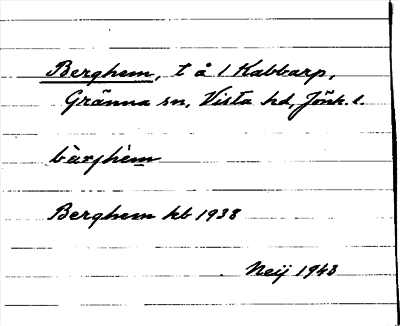 Berghem, t å 1 Kabbarp,
Gränna sn, Vista hd, Jönk. l.
Berghem kb 1938
Neij 1943